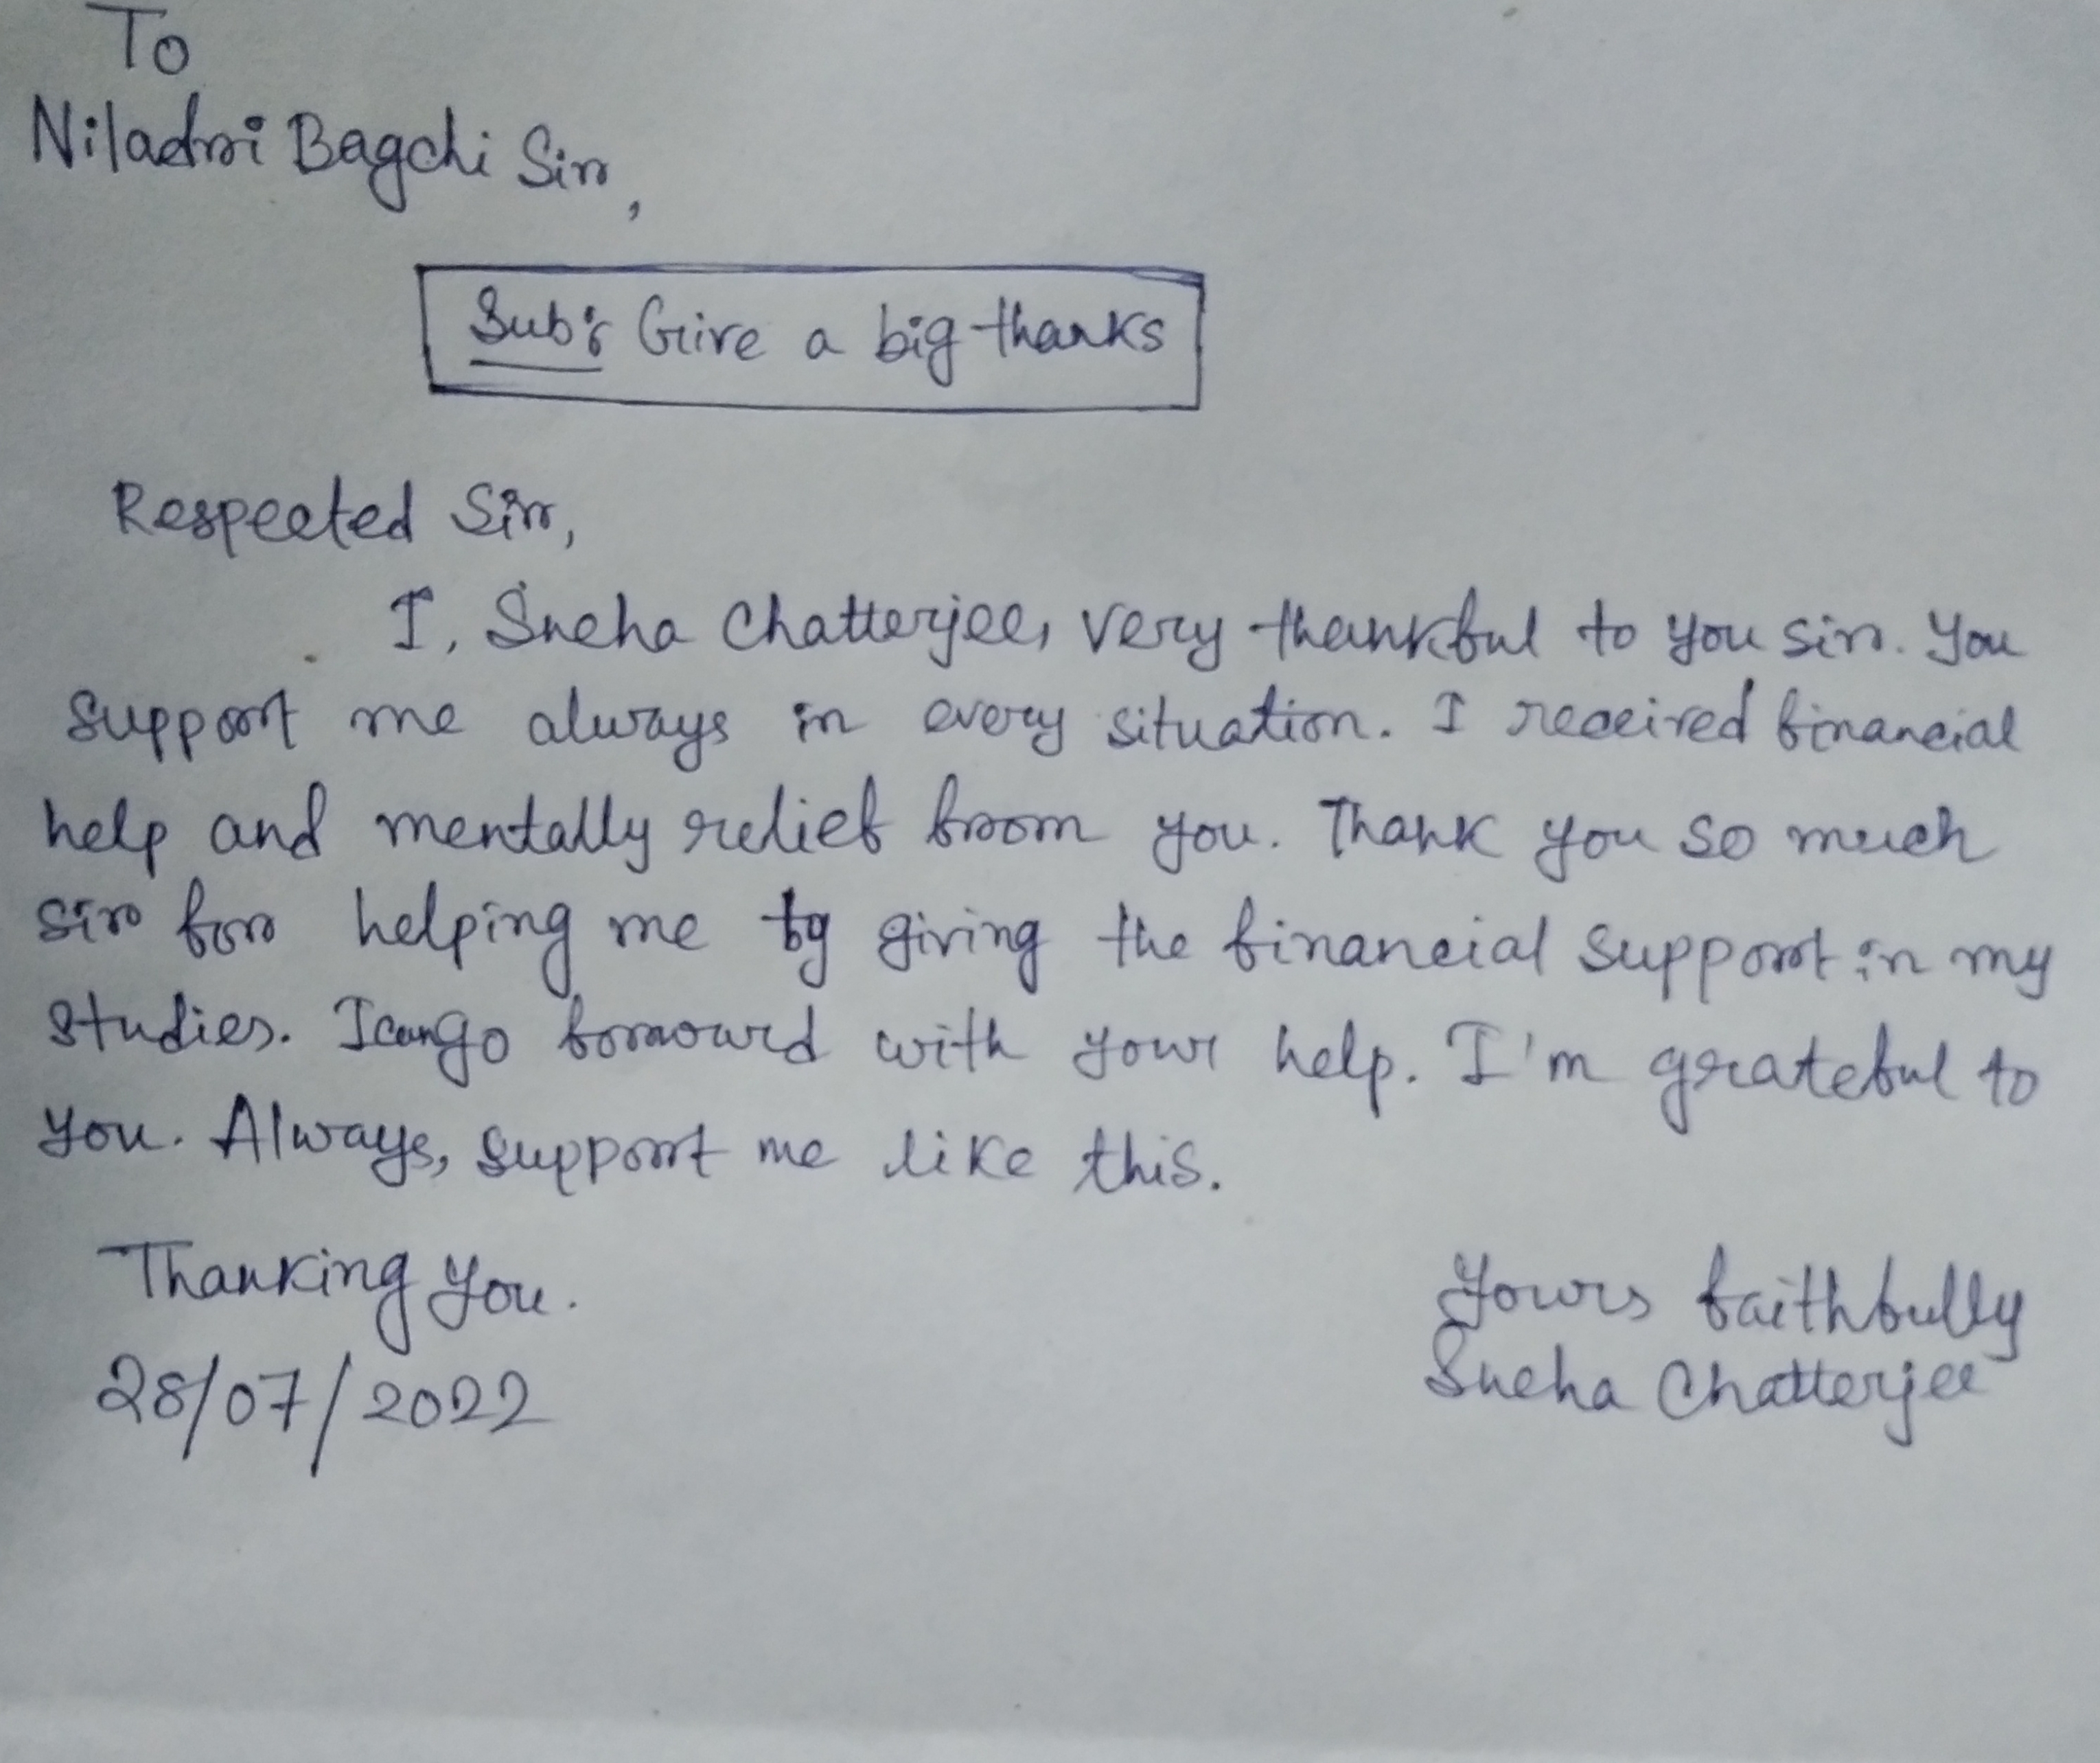 To
Niladri Bagchi Sir,
Sub: Give a big thanks
Respected Sir,
I, Sneha Chatterjee, very thankful to you sir. You
support me always in every situation. I received financial
help and mentally relief from you. Thank you so much
sir for helping me by giving the financial support in my
studies. I can go forward with your help. I'm grateful to
you. Always, support me like this.
Thanking you.
Yours faithfully
28/07/2022
Sneha Chatterjee